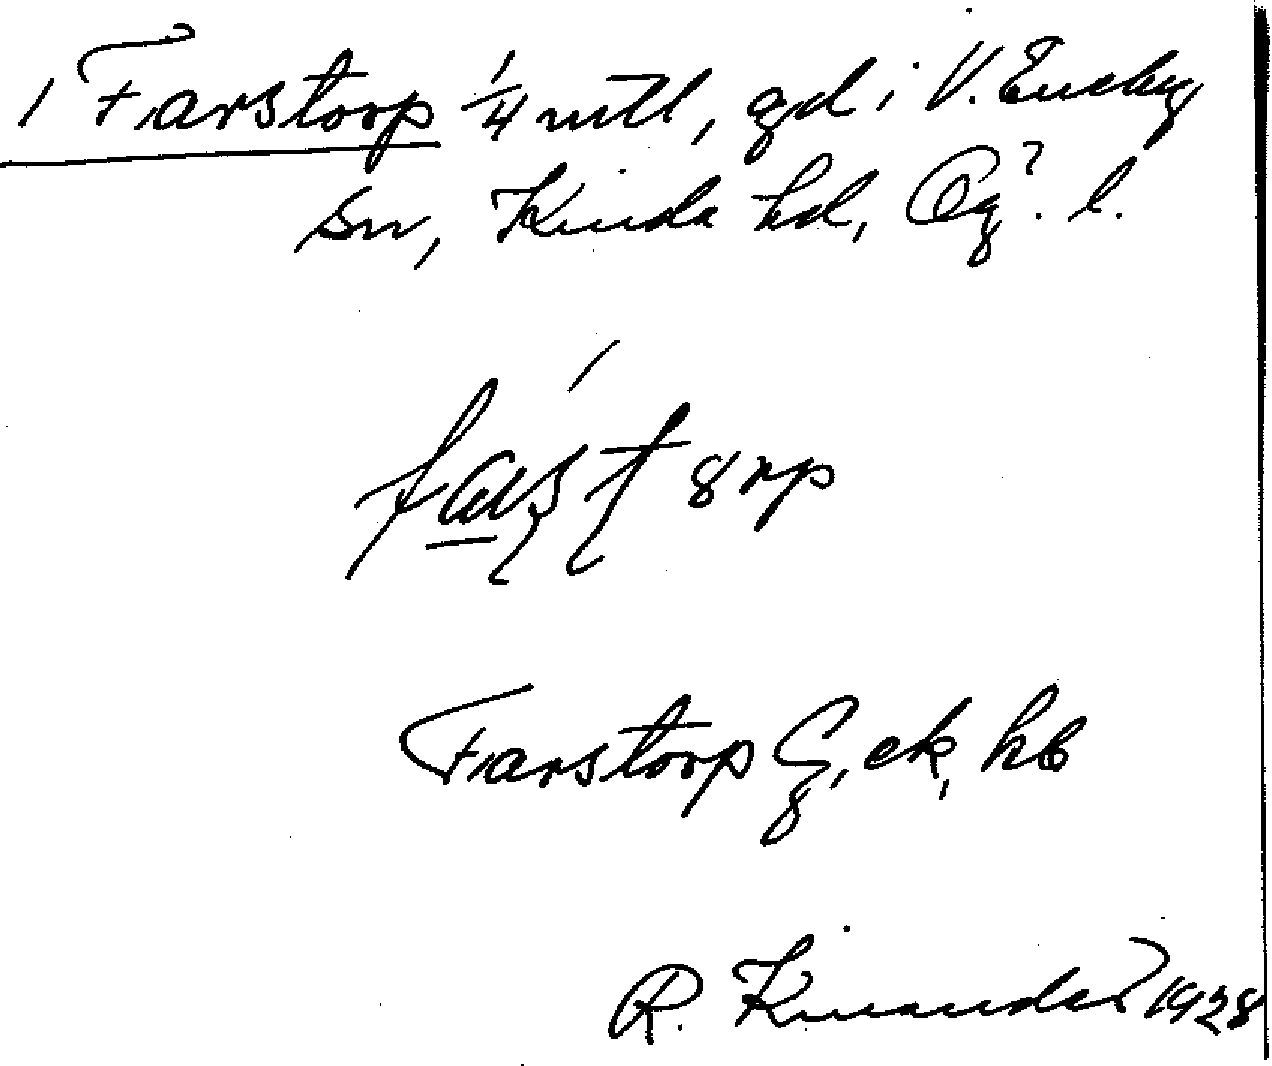 1 Farstorp 1/4 mtl, gd i V. Eneby
sn, Kinda hd, Ög. l.
Farstorp G, ek, hb
R. Kinander 1928